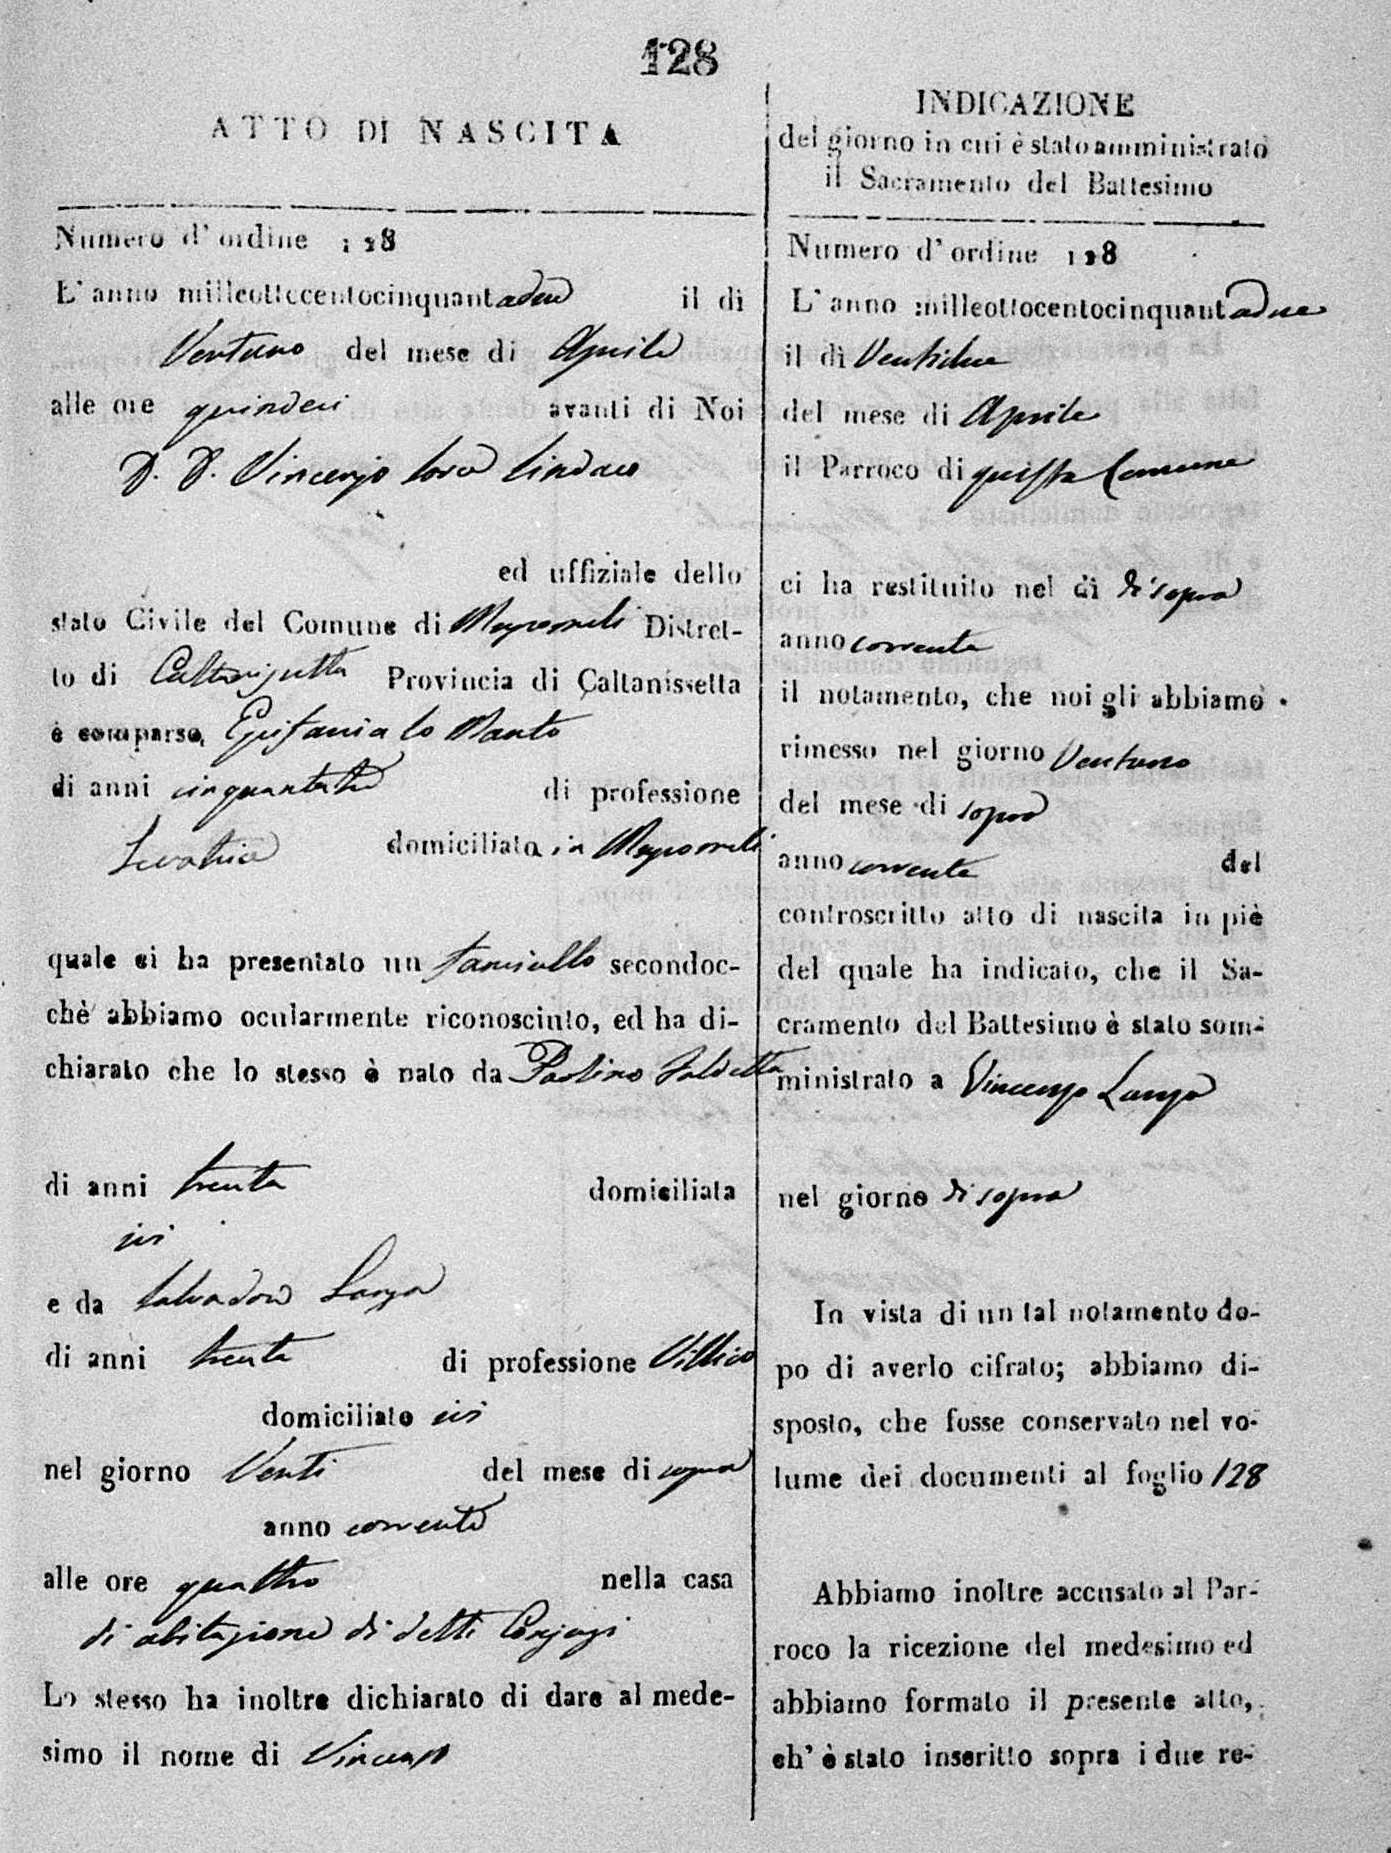 128
ATTO DI NASCITA
Numero d'ordine 128
L'anno milleottocentocinquantadue il di
Ventuno del mese di Aprile
alle ore quindeci avanti di Noi
D. D. Vincenzo Sindaco
ed uffiziale dello
stato Civile del Comune di Distret-
to di Caltanissetta Provincia di Caltanissetta
è comparsa Epifania lo Manto
di anni cinquantatre di professione
Levatrice domiciliata in
quale ci ha presentato un fanciullo secondoc-
chè abbiamo ocularmente riconosciuto, ed ha di-
chiarato che lo stesso è nato da Paolina
di anni trenta domiciliata
ivi
e da Salvadore Lanza
di anni trenta di professione Villico
domiciliato ivi
nel giorno Venti del mese di sopra
anno corrente
alle ore quattro nella casa
di abitazione di detti Conjugi
Lo stesso ha inoltre dichiarato di dare al mede-
simo il nome di Vincenzo
INDICAZIONE
del giorno in cui è stato amministrato
il Sacramento del Battesimo
Numero d'ordine 128
L'anno milleottocentocinquantadue
il dì Ventidue
del mese di Aprile
il Parroco di questa Comune
ci ha restituito nel dì di sopra
anno corrente
il notamento, che noi gli abbiamo
rimesso nel giorno Ventuno
del mese di sopra
anno corrente del
controscritto atto di nascita in piè
del quale ha indicato, che il Sa-
cramento del Battesimo è stato som-
ministrato a Vincenzo Lanza
nel giorno di sopra
In vista di un tal notamento do-
po di averlo cifrato; abbiamo di-
sposto, che fosse conservato nel vo-
lume dei documenti al foglio 128
Abbiamo inoltre accusato al Par-
roco la ricezione del medesimo ed
abbiamo formato il presente atto,
ch' è stato inseritto sopra i due re-